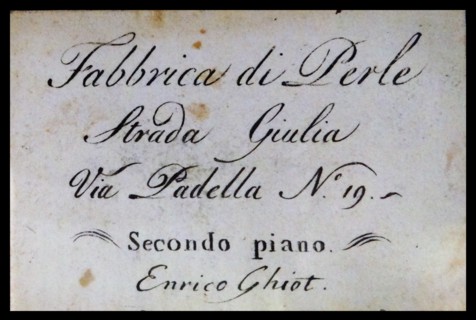 Fabbrica di Perle
Strada Giulia
Via Padella N.º 19.
Secondo piano.
Enrico Ghiot.